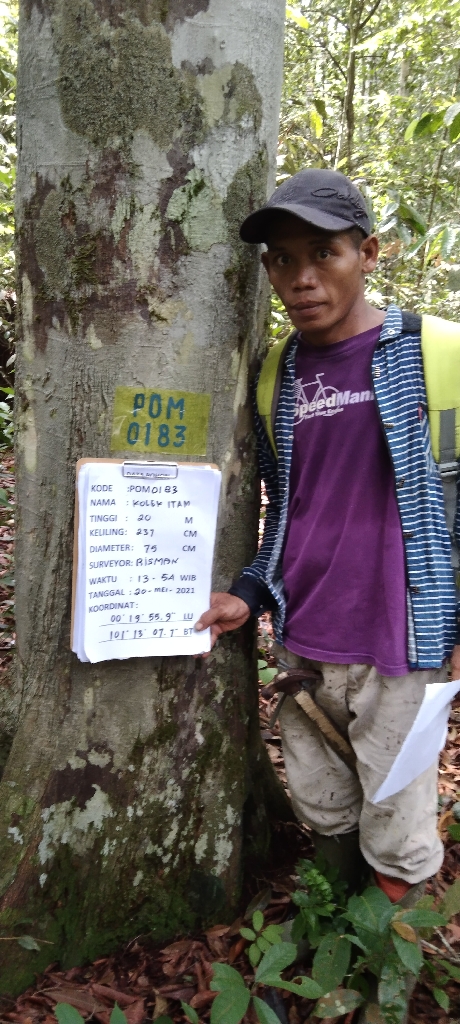 POM
0183
DATA POHON
KODE :POM0183
NAMA : KOLEK ITAM
TINGGI : 20 M
KELILING: 237 CM
DIAMETER: 75 CM
SURVEYOR: RISMAN
WAKTU : 13-54 WIB
TANGGAL :20-MEI-2021
KOORDINAT:
00° 19' 55.9" LU
101° 13' 07.7" BT
SpeedMani